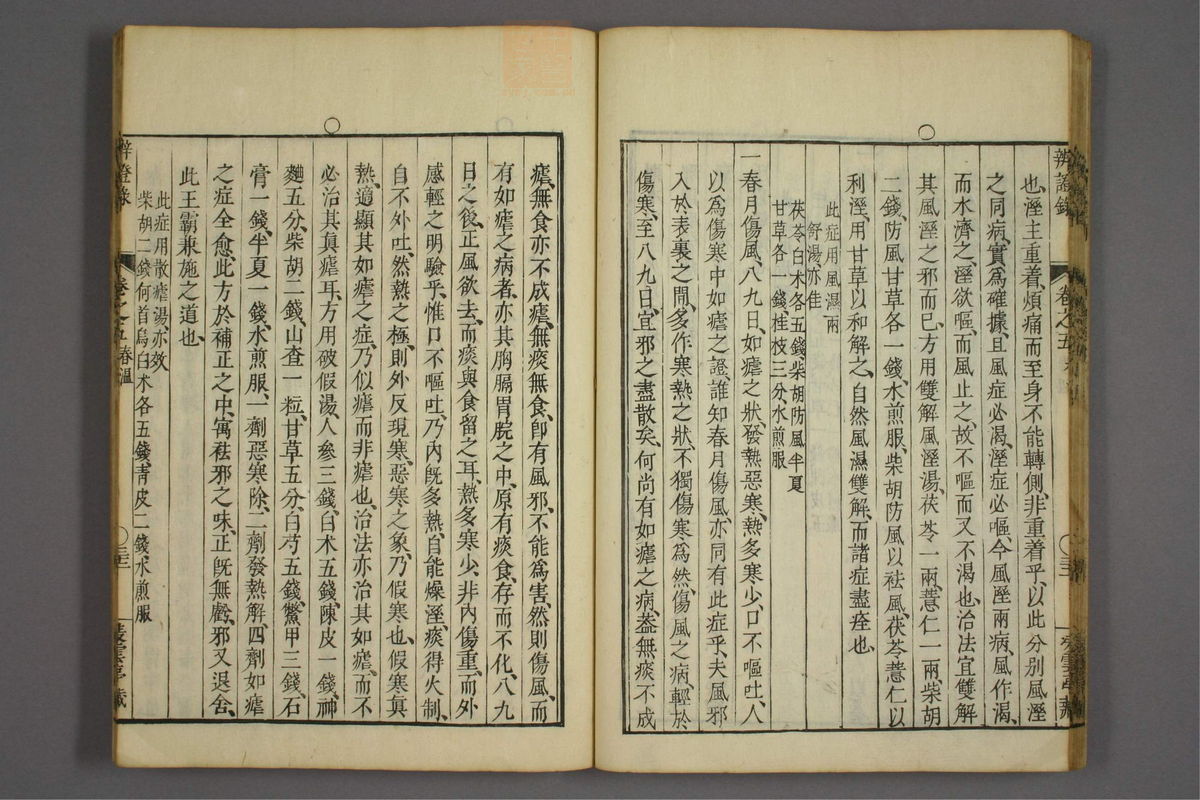 也溼主重着煩痛而至身不能轉側非重着乎以此分别風溼
之同病實爲確據且風症必渴溼症必嘔今風溼兩病風作渴
而水濟之溼欲嘔而風止之故不嘔而又不渴也治法宜雙解
其風溼之邪而巳方用雙解風溼湯茯苓一兩薏仁一兩柴胡
二錢防風甘草各一錢水煎服柴胡防風以袪風茯苓薏仁以
利溼用甘草以和解之自然風濕雙解而諸症盡痊也
此症用風濕兩
舒湯亦佳
茯苓白术各五錢柴胡防風半夏
甘草各一錢桂枝三分水煎服
一春月傷風八九日如瘧之狀發熱惡寒熱多寒少口不嘔吐人
以爲傷寒中如瘧之證誰知春月傷風亦同有此症乎夫風邪
入於表裏之間多作寒熱之狀不獨傷寒爲然傷風之病輕於
傷寒至八九日宜邪之盡散矣何尚有如瘧之病葢無痰不成
瘧無食亦不成瘧無痰無食卽有風邪不能爲害然則傷風而
有如瘧之病者亦其胸膈胃脘之中原有痰食存而不化八九
日之後正風欲去而痰與食留之耳熱多寒少非內傷重而外
感輕之明驗乎惟口不嘔吐乃內旣多熱自能燥溼痰得火制
自不外吐然熱之極則外反現寒惡寒之象乃假寒也假寒真
熱適顯其如瘧之症乃似瘧而非瘧也治法亦治其如瘧而不
必治其眞瘧耳方用破假湯人參三錢白术五錢陳皮一錢神
麯五分柴胡二錢山查一粒甘草五分白芍五錢鱉甲三錢石
膏一錢半夏一錢水煎服一劑惡寒除二劑發熱解四劑如瘧
之症全愈此方於補正之中寓袪邪之味正旣無虧邪又退舍
此王霸兼施之道也
此症用散瘧湯亦效
柴胡二錢何首烏白术各五錢靑皮二錢水煎服
辨證錄 卷之五
辨證錄 卷之五 春溫